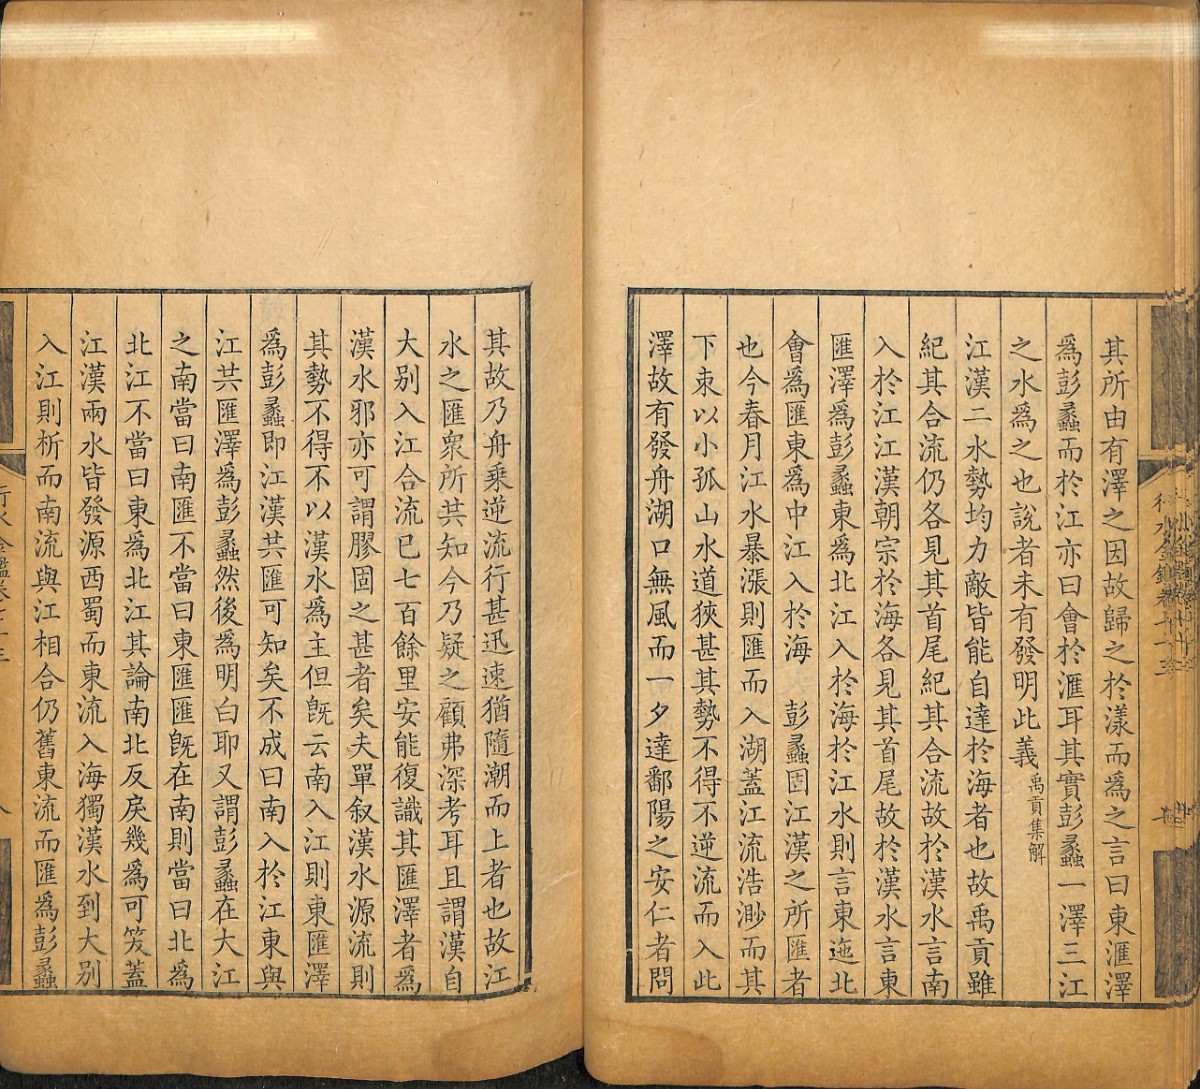 其所由有澤之因故歸之於漾而為之言曰東滙澤
為彭蠡而於江亦曰會於滙耳其實彭蠡一澤三江
之水為之也說者未有發明此義禹貢集解
江漢二水勢均力敵皆能自達於海者也故禹貢雖
紀其合流仍各見其首尾紀其合流故於漢水言南
入於江江漢朝宗於海各見其首尾故於漢水言東
匯澤為彭蠡東為北江入於海於江水則言東迆北
會為匯東為中江入於海　彭蠡固江漢之所匯者
也今春月江水暴漲則匯而入湖蓋江流浩渺而其
下束以小孤山水道狹甚其勢不得不逆流而入此
澤故有發舟湖口無風而一夕達鄱陽之安仁者問
其故乃舟乘逆流行甚迅速猶隨潮而上者也故江
水之匯衆所共知今乃疑之顧弗深考耳且謂漢自
大別入江合流已七百餘里安能復識其匯澤者為
漢水邪亦可謂膠固之甚者矣夫單叙漢水源流則
其勢不得不以漢水為主但旣云南入江則東匯澤
為彭蠡即江漢共匯可知矣不成曰南入於江東與
江共匯澤為彭蠡然後為明白耶又謂彭蠡在大江
之南當曰南匯不當曰東匯匯旣在南則當曰北為
北江不當曰東為北江其論南北反戾幾為可笑蓋
江漢兩水皆發源西蜀而東流入海獨漢水到大別
入江則析而南流與江相合仍舊東流而匯為彭蠡
行水金鑑卷七十三
八